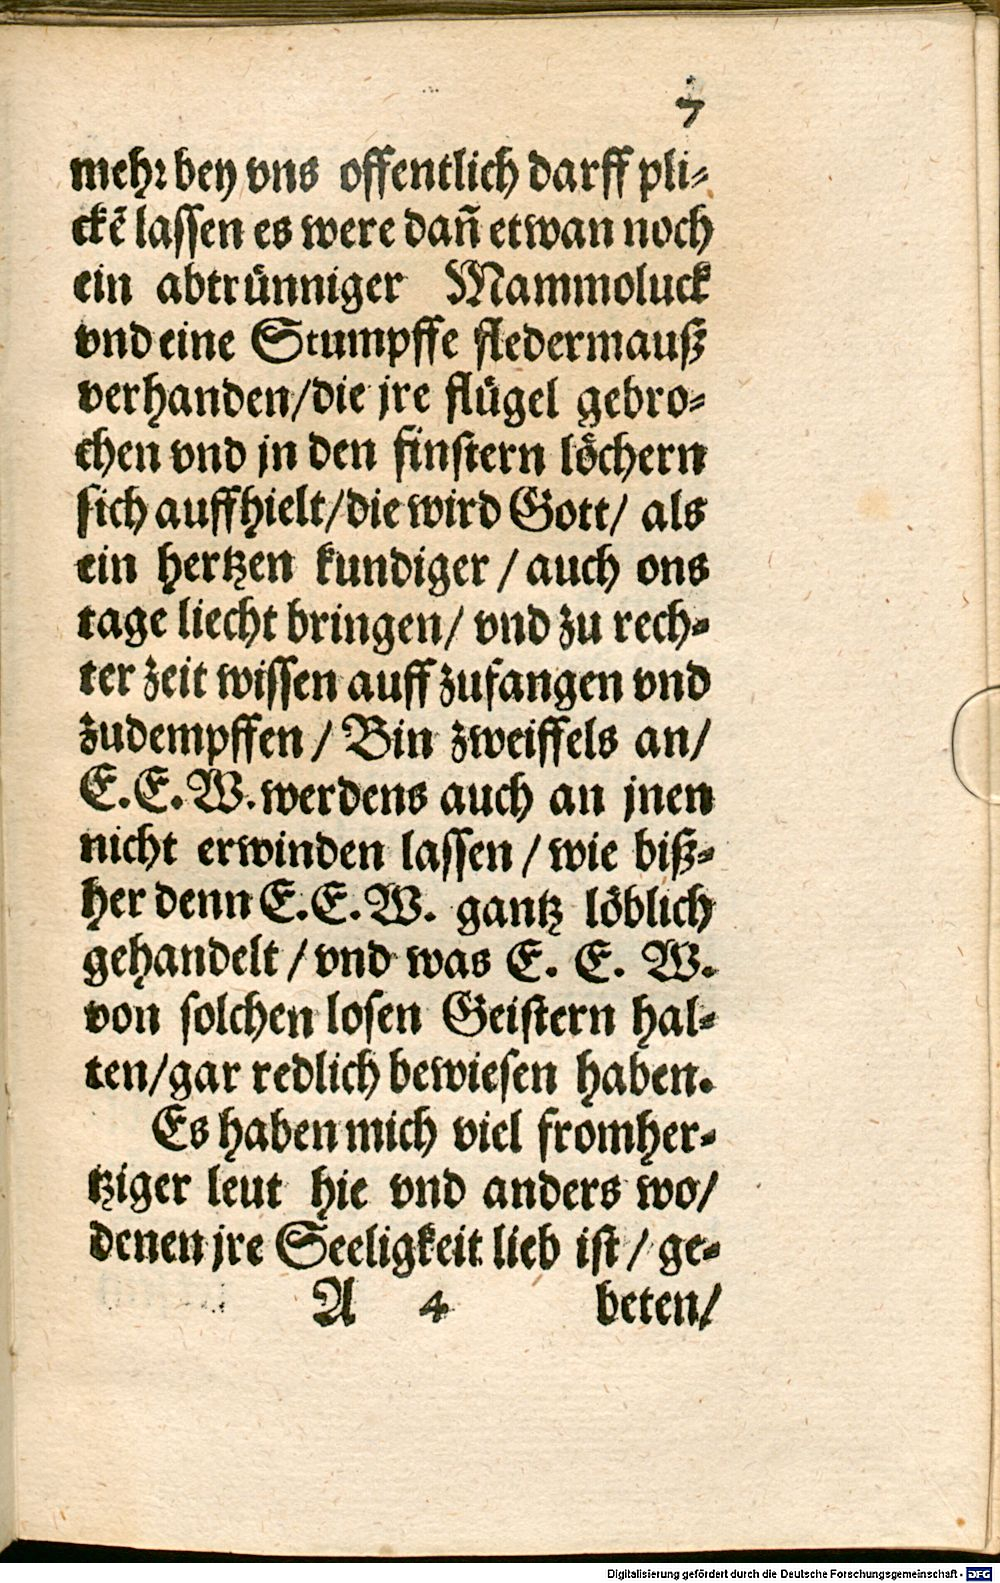 7
mehr bey vns offentlich darff pli⸗
ckẽ lassen es were dañ etwan noch
ein abtrünniger Mammoluck
vnd eine Stumpffe fledermauß
verhanden/die jre flügel gebro⸗
chen vnd jn den finstern löchern
sich auffhielt/die wird Gott/ als
ein hertzen kundiger / auch ons
tage liecht bringen/ vnd zu rech⸗
ter zeit wissen auff zufangen vnd
zudempffen / Bin zweiffels an/
E.E.W. werdens auch an jnen
nicht erwinden lassen / wie biß⸗
her denn E.E.W. gantz löblich
gehandelt / vnd was E. E. W.
von solchen losen Geistern hal⸗
ten/gar redlich bewiesen haben.
Es haben mich viel fromher⸗
tziger leut hie vnd anders wo/
denen jre Seeligkeit lieb ist / ge⸗
A 4 beten/
Digitalisierung gefördert durch die Deutsche Forschungsgemeinschaft - DFG